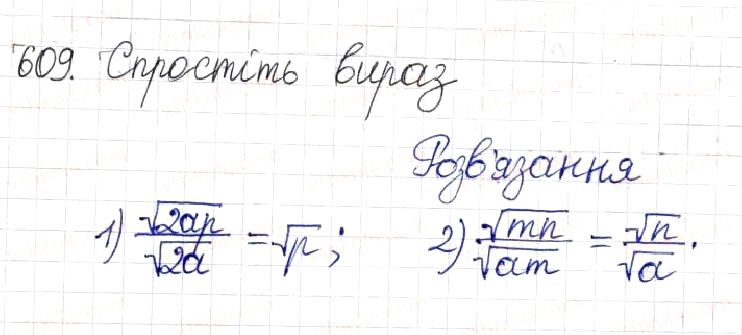 609. Спростіть вираз
Розв'язання
1) √2ap/√2a = √p; 2) √mn/√am = √n/√a.